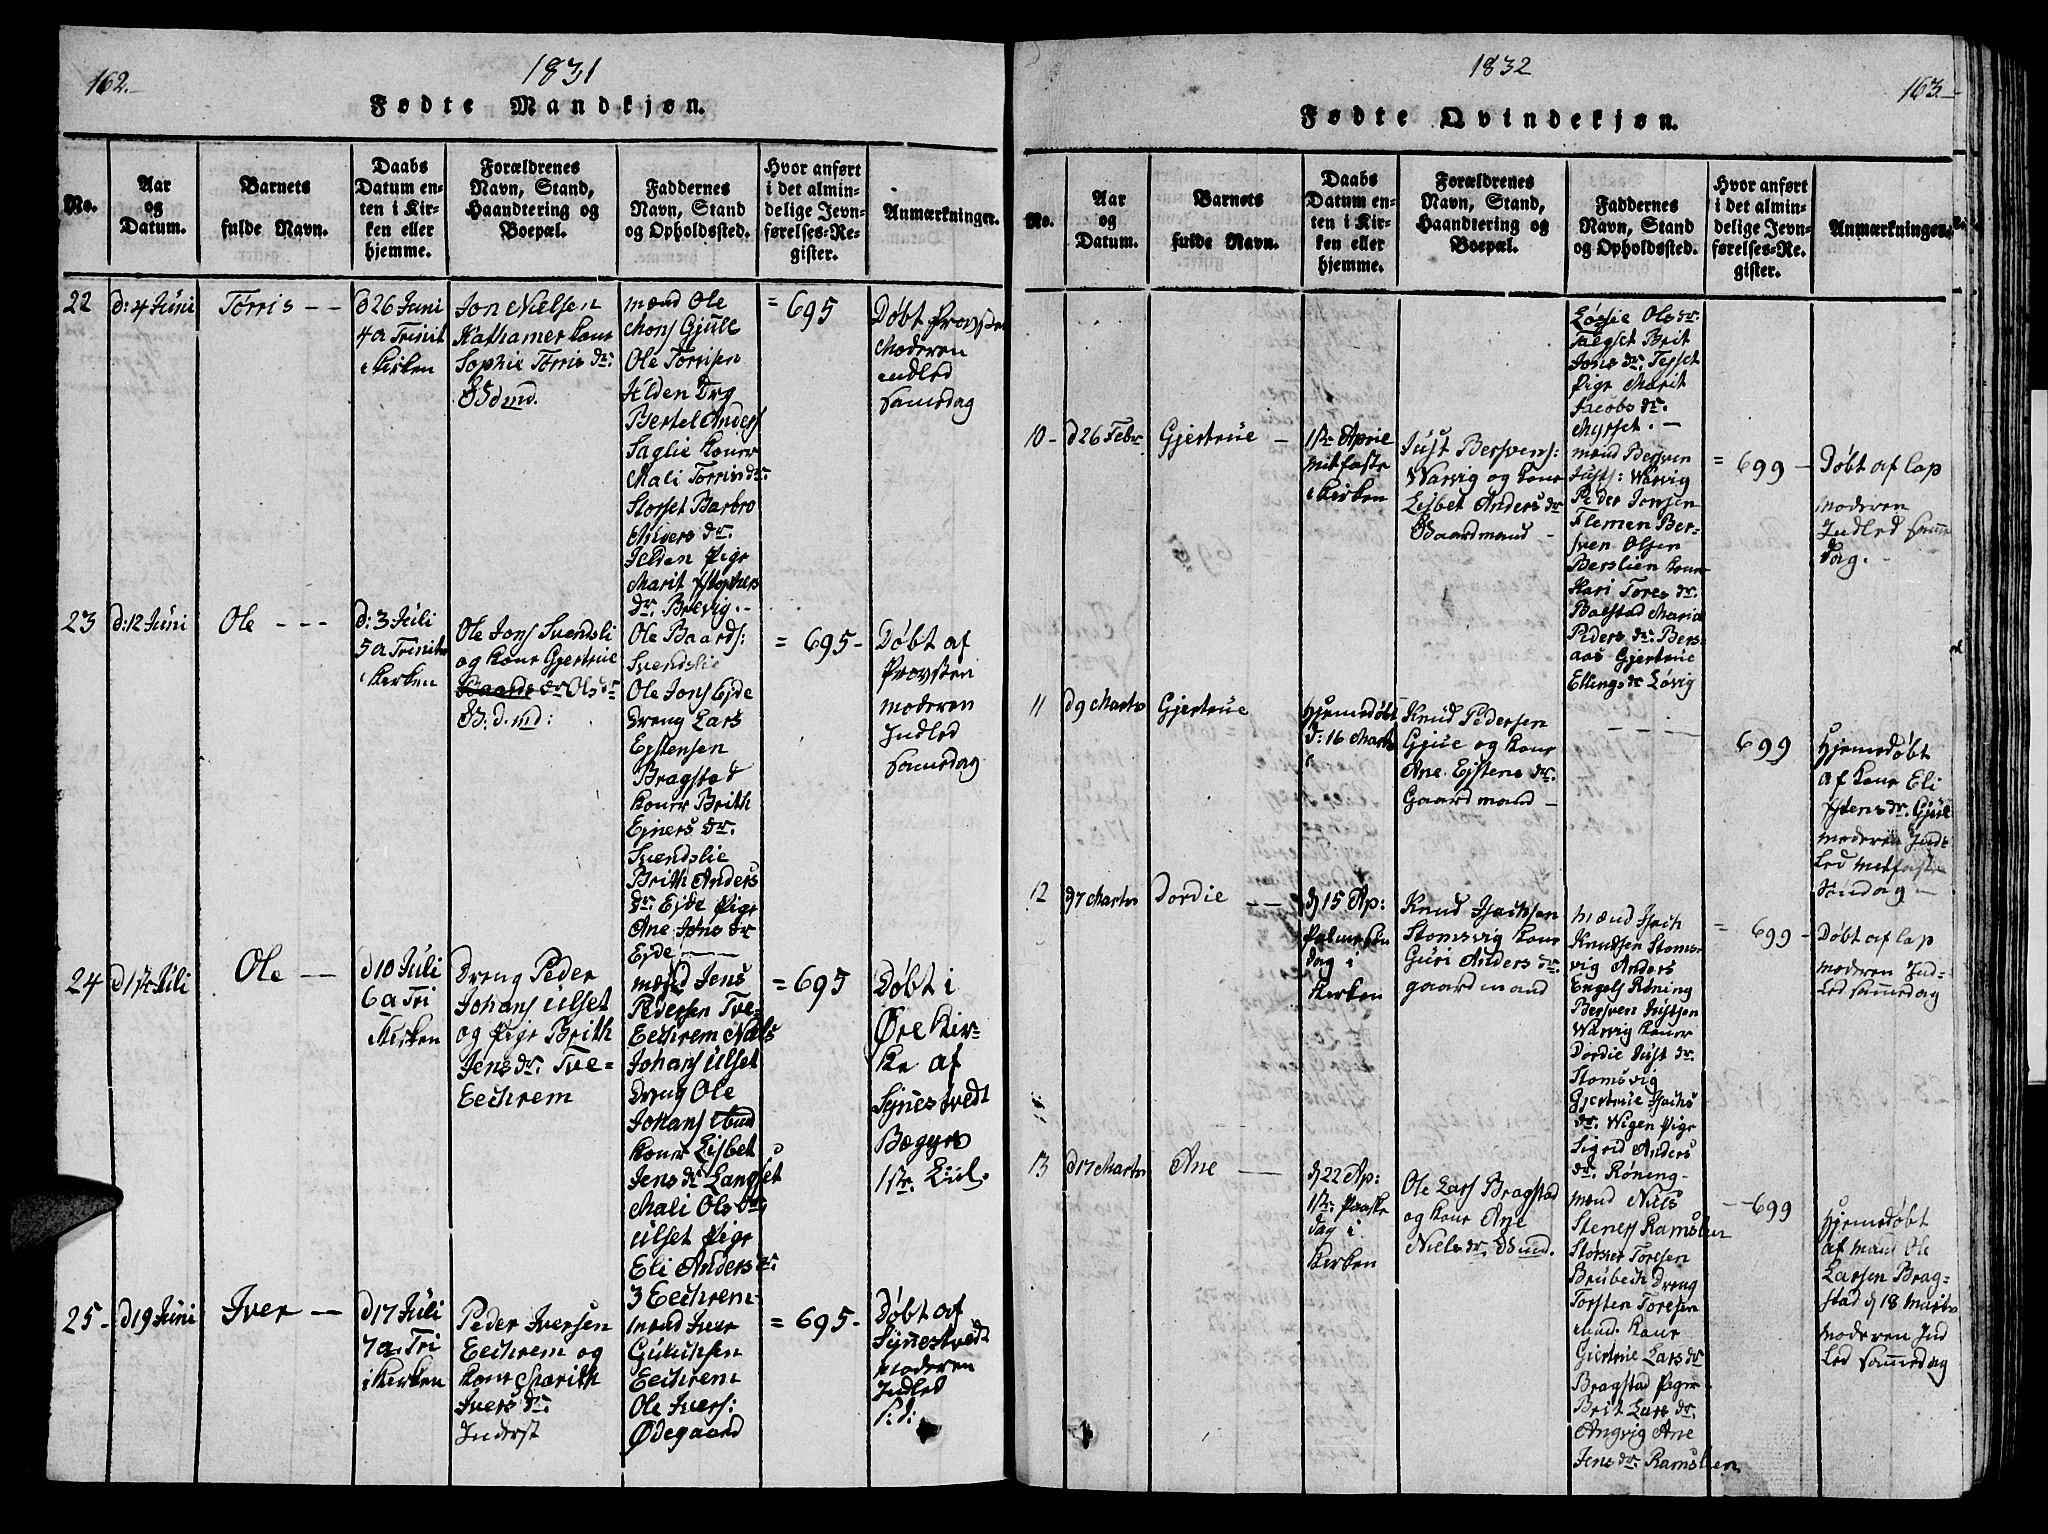 162.
1831
Fødte Mandkjøn.
No.
Aar
og
Datum.
Barnets
fulde Navn.
Daabs
Datum en-
ten i Kir-
ken eller
hjemme.
Forældrenes
Navn, Stand,
Haandtering og
Boepæl.
Faddernes
Navn, Stand
og Opholdssted.
Hvor anført
i det almin-
delige Jevn-
førelses-Re-
gister.
Anmærkninger.
22
d: 4 Juni
Torris - -
d 26 Juni
4 a Trinit
i Kirken
Jon Nielsen
Kathamer kone
Sophie Torris dr:
mænd Ole
Mons Gjule
Ole Torrisen
Ilden Drg
Bertel Anders
Saglie koner
Mali Torrisdr:
Storset Barbro
Sivers dr:
Jelden Pige
Marit
dr: Brevig. -
= 695
Døbt Provsten
Moderen
indled
samedag
23
d: 12 Juni
Ole - - -
d: 3 Juli
5 a Trinit
i Kirken
Ole Jons Svendsli
og kone Gjertrue
dr Ols dr
G: d. md:
Ole Baards:
Svendslie
Ole Jons Ejde
Dreng Lars
Ejstensen
Bragstad
koner Brith
Ejners dr:
Svendslie
Brith Anders
dr: Ejde Pige
Ane Jons dr
Ejde
= 695 -
Døbt af
Provsten
moderen
Indled
samedag
24
d 1ste Juli
Ole - -
d 10 Juli
6 a Tri
i Kirken
Dreng Peder
Johans Ulset
og Pige Brith
Jens dr: Tve-
Eechrem
mænd Jens
Pedersen Tve-
Eechrem Niels
Johans Ulset
Dreng Ole
Johans
koner Lisbet
Jens dr Langset
Mali Ols dr,
Ulset Pige
Eli Anders dr:
3 Eechrem
= 695
Døbt i
Øre Kir-
ke af
Synestvedt
Begges
1ste Leil.
25 -
d 19 Juni
Iver -
d 17 Juli
7 a. Tri
i Kirken
Peder Iversen
Eechrem og
kone Marith
Ivers dr:
Inderst
mænd Iver
Gululsen
Eechrem
Ole Ivers:
Ødegaard
= 695 -
Døbt af
Synestvedt
Moderen
Indled
S: d:
1832
163.
Fødte Qvindekjøn.
No.
Aar
og
Datum.
Barnets
fulde Navn.
Daabs
Datum en-
ten i Kir-
ken eller
hjemme.
Forældrenes
Navn, Stand,
Haandtering og
Boepæl.
Faddernes
Navn, Stand
og Opholdssted.
Hvor anført
i det almin-
delige Jevn-
førelses-Re-
gister.
Anmærkninger.
Ols dr:
Talgset Brit
Jons dr. Tesset
Pige Marit
Jacobs dr.
Myrset. -
10 -
d 26 Febr
Gjertrue -
1ste Aprie
Mitfaste
i Kirken
Just Bersvens:
Warvig og kone
Lisbet Anders dr
Gaardmand -
mænd Bersven
Justs: Warvig
Peder Jonsen
Flemen Ber-
sven Olsen
Berslien koner
Kari Tores dr.
Bolstad Maria
Peders dr: Bers-
aas Gjertrue
Ellings dr Løvig
= 699 -
Døbt af Cap
moderen
Indled same
dag. -
11
d 9 Marts
Gjertrue
Hjemedøbt
d: 16 Marts
Knud Pedersen
Gjule og kone
Ane Ejstens dr.
Gaardmand -
699
Hjemedøbt
af kone Eli
dr. Gjul
moderen Ind-
led Mitfaste
Søndag -
12
d 7 Marts
Dordie - -
d 15 Ap:
Palmesøn
dag i
Kirken
Knud Isachsen
Stomsvig kone
Guri Anders dr.
gaardmand
mænd Isach
Knudsen Stoms-
vig Anders
Engels Røning
Bersven Justsen
Warvig koner
Dordie Just dr.
Stomsvig
Gjertrue Isachs
dr. Wigen Pige
Sigrid Anders
dr. Røning -
= 699 -
Døbt af Cap
moderen Ind-
led samedag
13
d 17 Marts
Ane -
d 22 Ap:
1ste Paaske
dag i
Kirken
Ole Lars Bragstad
og kone Ane
Niels dr. Gdmd.
mænd Nils
Stenes Ramslien
Størker Toresen
Brubech Dreng
Torsten Toresen
kone
Giertrue Lars dr
Bragstad Piger
Brit Lars dr.
Angvig Ane
Jens dr: Ramslien
- 699
Hjemedøbt
af mand Ole
Larsen Brag-
stad d 18 Marts
moderen Ind
led samedag